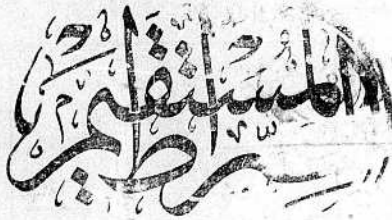 السّراط المستقيم